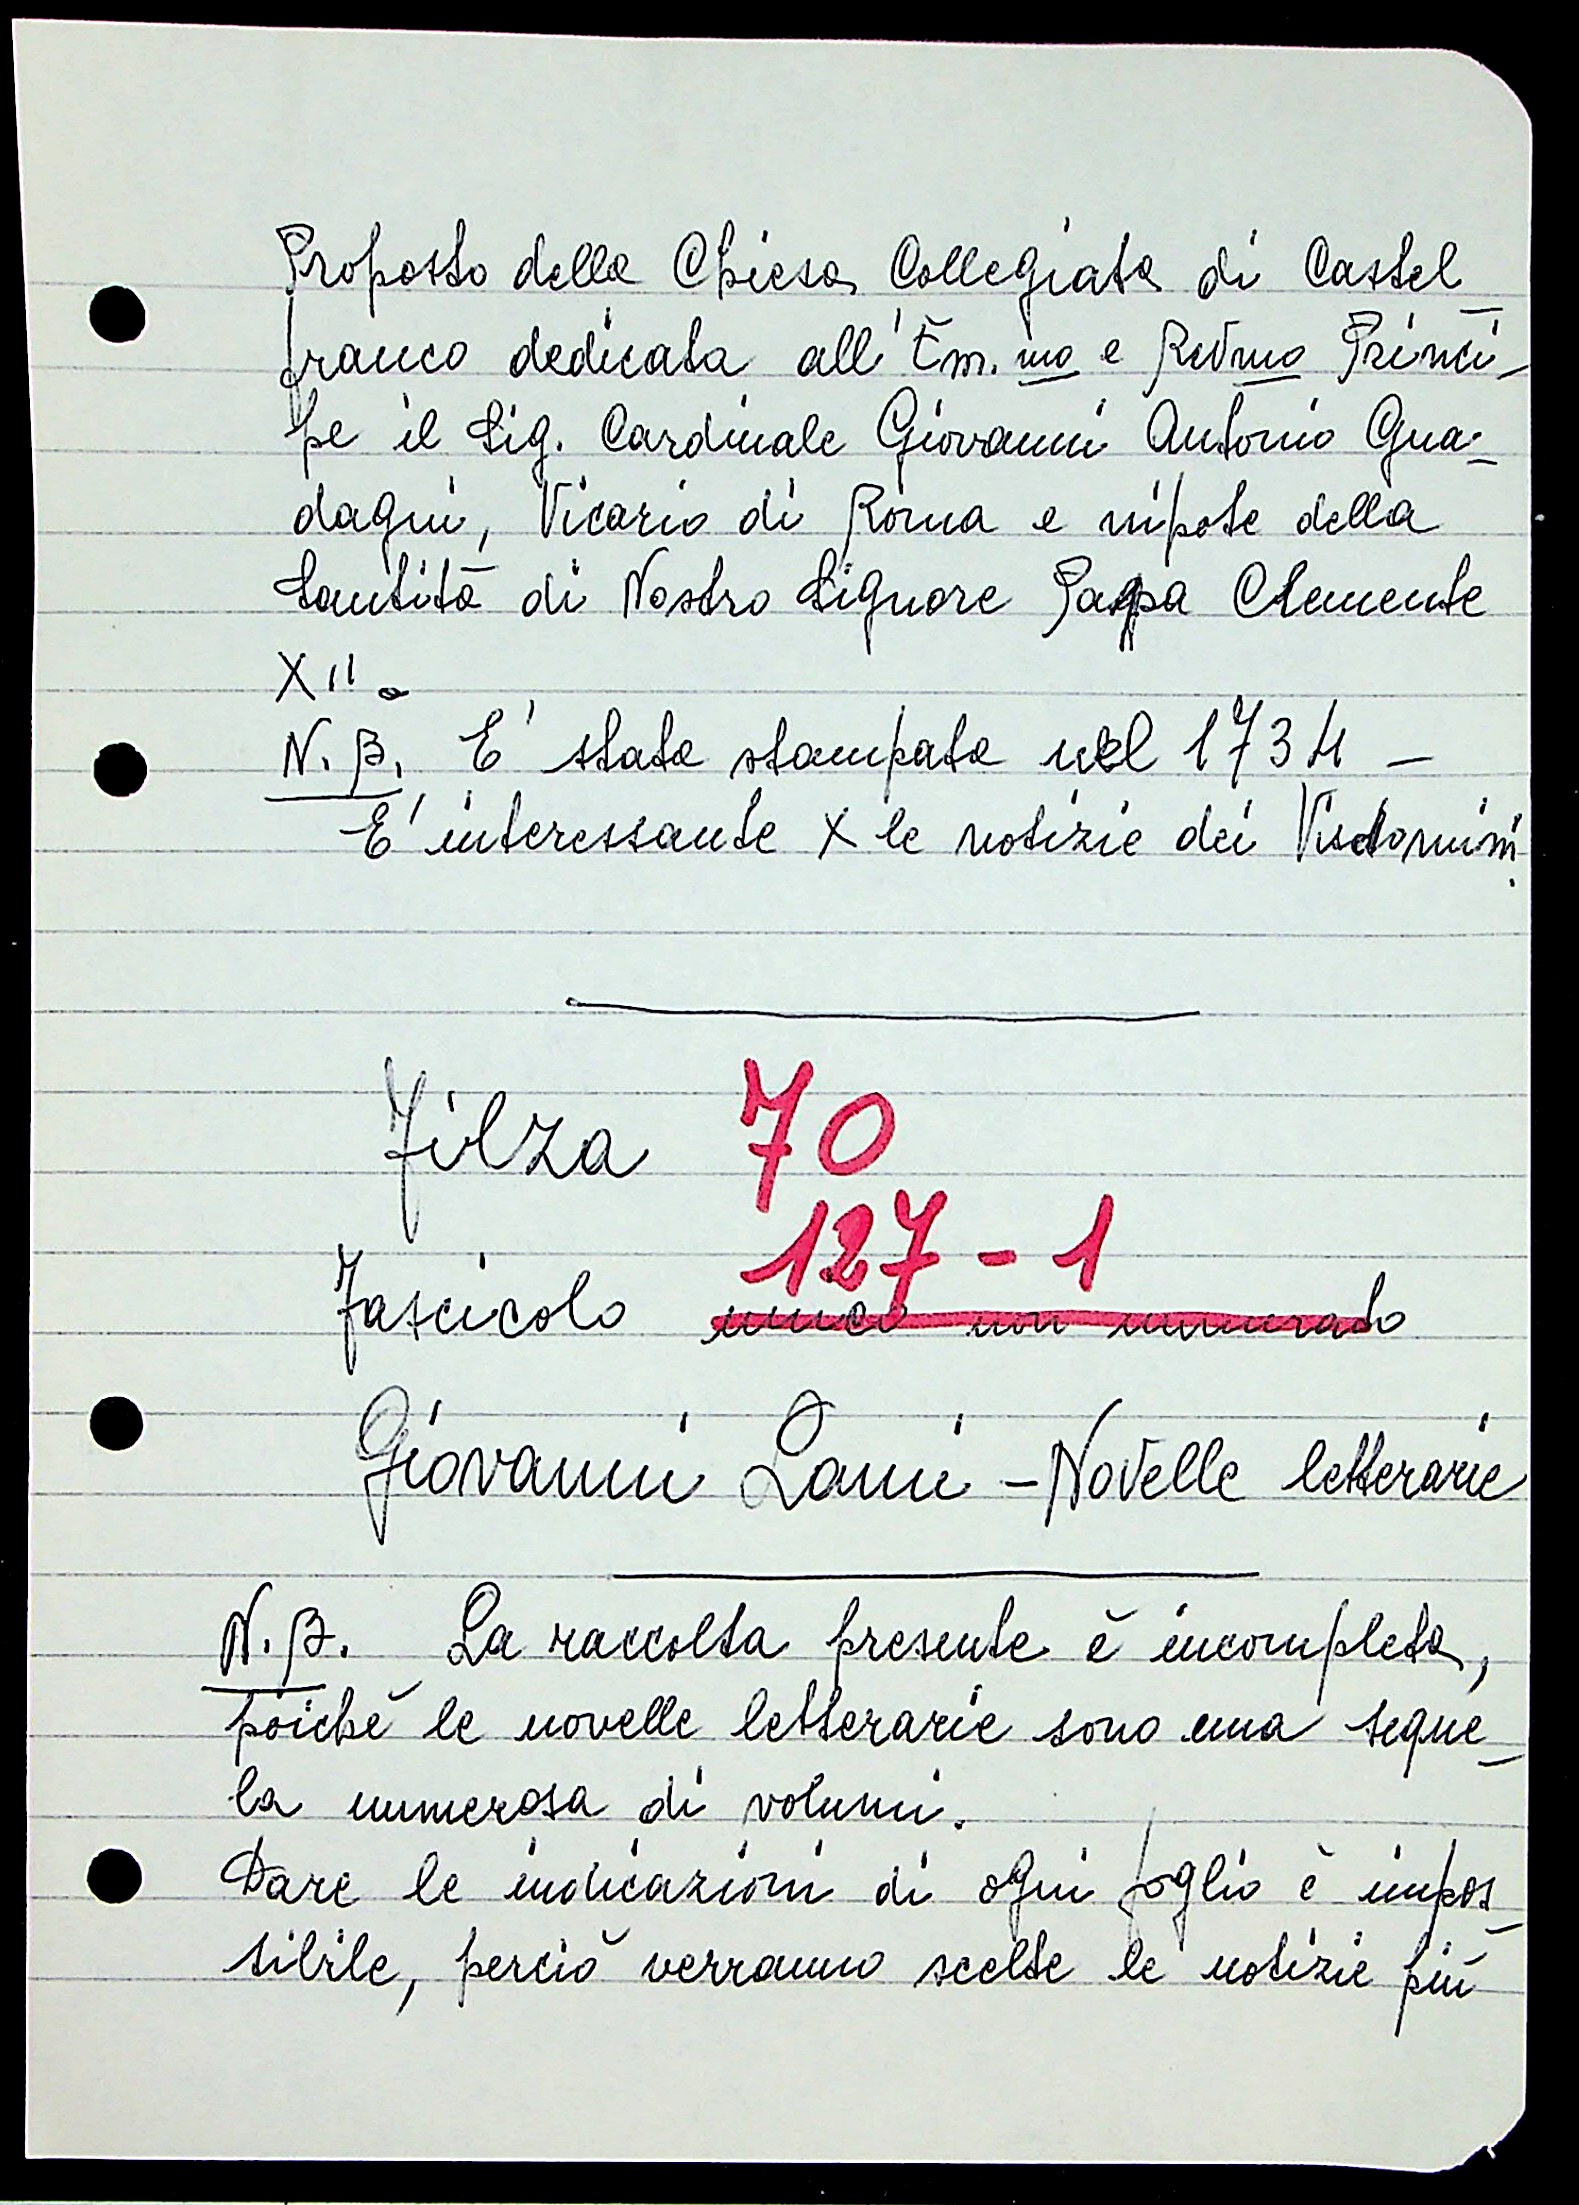 Proposto della Chiesa Collegiata di Castel_
franco dedicata all'Em.mo e Revmo Princi_
pe il Sig. Cardinale Giovanni Antonio Gua_
dagni, Vicario di Roma e nipote della
Santità di Nostro Signore Papa Clemente
XII.
N.B. E' stata stampata nel 1734 –
E' interessante X le notizie dei Visdomini.
Filza 70
127 - 1
Fascicolo unico non numerato
Giovanni Lami – Novelle letterarie
N.B. La raccolta presente è incompleta,
poiché le novelle letterarie sono una seque_
la numerosa di volumi.
Dare le indicazioni di ogni foglio è impos_
sibile, perciò verranno scelte le notizie più